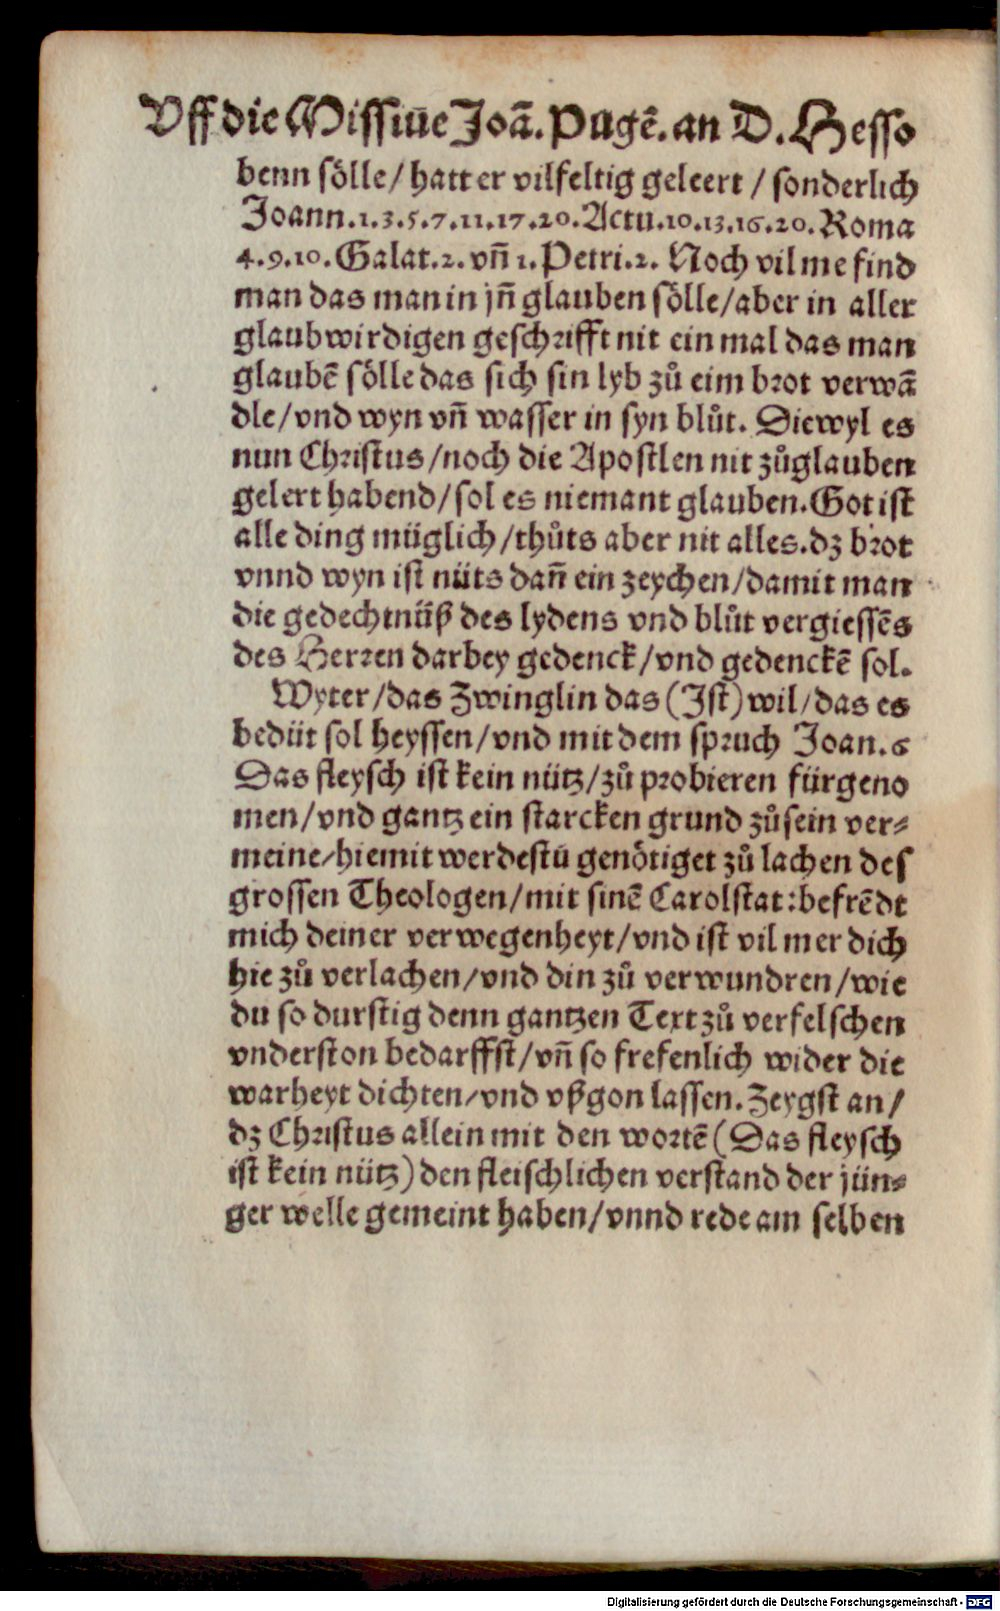 Vff die Missiue Joā. Pugē. an D. Hesso
benn sölle / hatt er vilfeltig geleert / sonderlich
Joann.1.3.5.7.11.17.20. Actu.10.13.16.20. Roma
4.9.10. Galat.2. vñ 1. Petri.2. Noch vil me find
man das man in jñ glauben sölle / aber in aller
glaubwirdigen geschrifft nit ein mal das man
glaubē sölle das sich sin lyb zů eim brot verwā
dle / vnd wyn vñ wasser in syn blůt. Diewyl es
nun Christus / noch die Apostlen nit zůglauben
gelert habend / sol es niemant glauben. Got ist
alle ding müglich / thůts aber nit alles. dz brot
vnnd wyn ist nüts dañ ein zeychen / damit man
die gedechtnüß des lydens vnd blůt vergiessēs
des Herren darbey gedenck / vnd gedenckē sol.
Wyter / das Zwinglin das (Ist) wil / das es
bedüt sol heyssen / vnd mit dem spruch Joan.6
Das fleysch ist kein nütz / zů probieren fürgeno
men / vnd gantz ein starcken grund zů sein ver⸗
meine / hiemit werdestu genötiget zů lachen des
grossen Theologen / mit sinē Carolstat : befrēdt
mich deiner verwegenheyt / vnd ist vil mer dich
hie zů verlachen / vnd din zů verwundren / wie
du so durstig denn gantzen Text zů verfelschen
vnderston bedarffst / vñ so frefenlich wider die
warheyt dichten / vnd vßgon lassen. Zeygst an /
dz Christus allein mit den wortē (Das fleysch
ist kein nütz) den fleischlichen verstand der jün⸗
ger welle gemeint haben / vnnd rede am selben
Digitalisierung gefördert durch die Deutsche Forschungsgemeinschaft - DFG